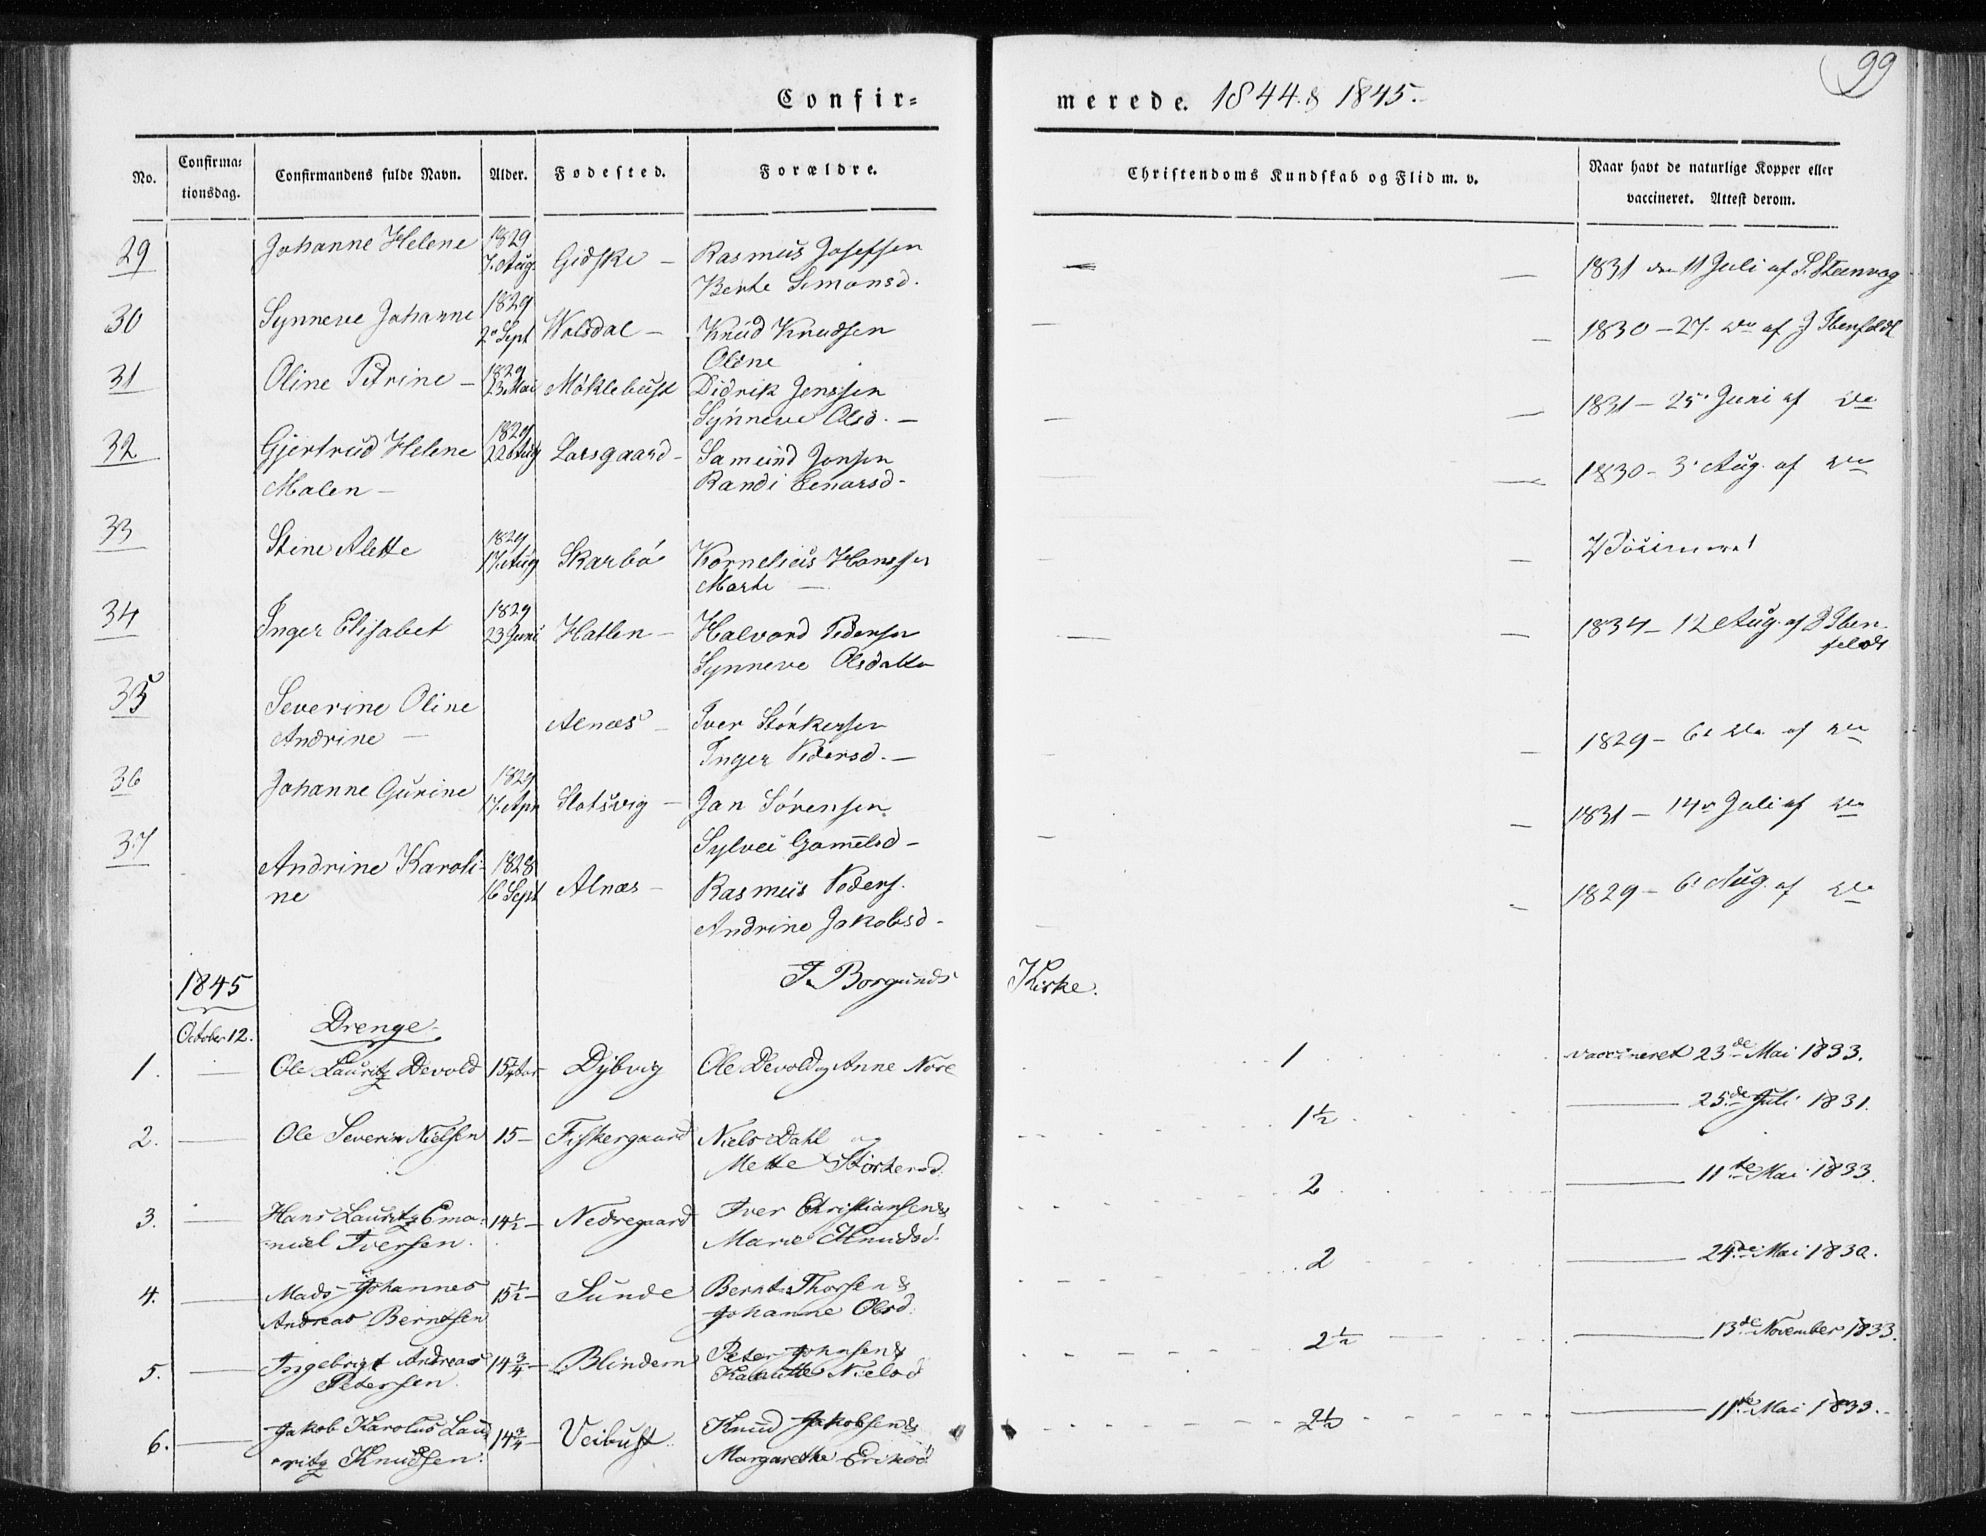 99
Confir=
merede. 1844. & 1845.
No.
Confirma=
tionsdag.
Confirmandens fulde Navn.
Alder.
Fødested.
Forældre.
Christendoms Kundskab og Flid m. v.
Naar havt de naturlige Kopper eller
vaccineret. Attest derom.
29 Johanne Helene 1829
7. Aug. Gidske — Rasmus Josefsen
Berte Simonsd. — — 1831 den 11 Juli af
30 Synneve Johanne 1829
Sept Walsdal — Knud Knudsen
Oline — — 1830 — 27. af J Ibenfeldt
31 Oline Petrine — 1829
23 Mai Möklebust Didrik Jenssen
Synneve Olsd. — — — 1831 — 25. Juni af do
32 Gjertrud Helene
Malen — 1829
22 Aug Larsgaard — Samund Jonsen
Randi Eenarsd — — — 1830 — 3. Aug. af do
33 Stine Alette 1829
17. Aug Skarbö Kornelius Hanssen
Marte — — —
34 Inger Elisabet 1829
23 Juni Hatlen — Halvard Pedersen
Synneve Olsdatter — — 1834 — 12 Aug. af J Iben-
feldt
35 Severine Oline
Andrine — Alnæs — Iver Störkersen
Inger Pedersd. — — 1829 — 6. do af do
36 Johanne Gurine 1829
17. Apr Slotsvig — Jan Sörensen
Sylvei Gamelsd — — — 1831 — 14 Juli af do
37 Andrine Karoli-
ne 1828
16 Sept Alnæs — Rasmus Peders.
Andrine Jakobsd. — — 1829 — 6. Aug. af do
1845
I Borgunds Kirke.
October 12. Drenge.
1. — Ole Lauritz Devold 15 Dybvig Ole Devold og Anne Nore 1 vaccineret 23de Mai 1833.
2. — Ole Severin Nielsen 15 — Fiskergaard Niels Dahl og
Mette Störkersd. 1½ — 25de Juli 1831.
3. — Hans Lauritz Ema-
nuel Iversen. 14½ — Nedregaard Iver Christiansen &
Marie Knudsd. 2 — 11te Mai 1833.
4. — Mads Johannes
Andreas Berntsen 15½ — Sunde Bernt Thorsen &
Johanne Olsd. 2 — 24de Mai 1830.
5. — Ingebrigt Andreas
Petersen. 14¾ — Blindem Peter Johnsen &
Nielsd 2½ — 13de November 1833.
6. — Jakob Karolus Lau-
ritz Knudsen. 14¾ — Veibust. Knud Jakobsen &
Margarethe Eriksd. 2½ — 11te Mai 1833.